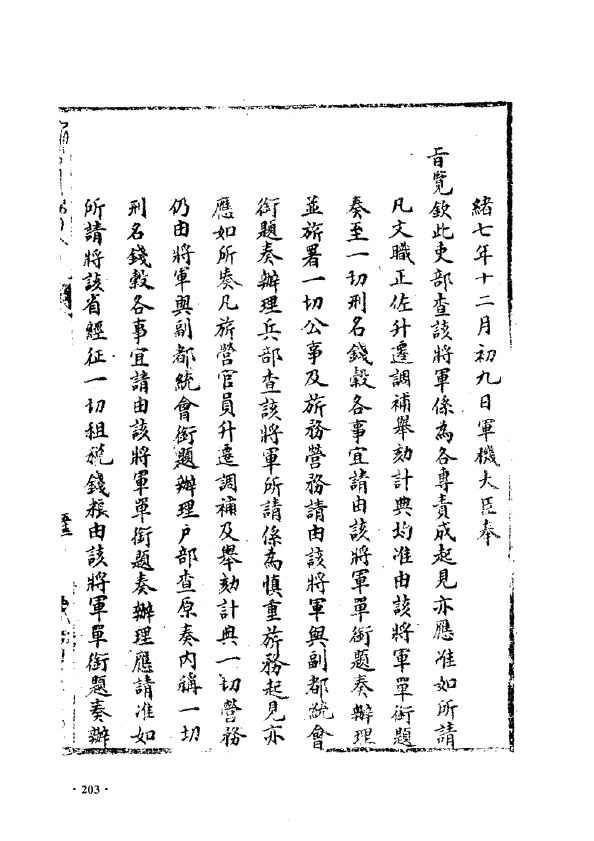 緒七年十二月初九日軍機大臣奉
旨覽欽此吏部查該將軍係為各專責成起見亦應准如所請
凡文職正佐升遷調補舉劾計典均准由該將軍單銜題
奏至一切刑名錢穀各事宜請由該將軍單銜題奏辦理
並旂署一切公事及旂務營務請由該將軍與副都統會
銜題奏辦理兵部查該將軍所請係為慎重旂務起見亦
應如所奏凡旂營官員升遷調補及舉劾計典一切營務
仍由將軍與副都統會銜題辦理户部查原奏內稱一切
刑名錢穀各事宜請由該將軍單銜題奏辦理應請准如
所請將該省經征一切租稅錢糧由該將軍單銜題奏辦
· 203 ·